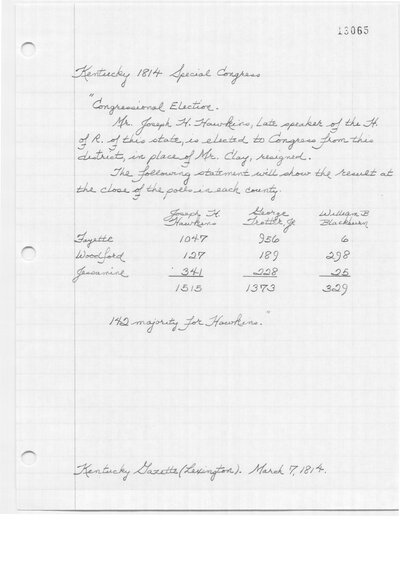 13065
Kentucky 1814 Special Congress
"Congressional Election.
Mr. Joseph H. Hawkins, late speaker of the H.
of R. of this state, is elected to Congress from this
district, in place of Mr. Clay, resigned.
The following statement will show the result at
the close of the polls in each county.
Joseph H. Hawkins George Trotter Jr William B Blackburn
Fayette 1047 956 6
Woodford 127 189 298
Jessamine 341 228 25
1515 1373 329
142 majority for Hawkins."
Kentucky Gazette (Lexington). March 7, 1814.